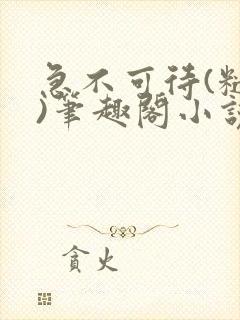 急不可待(
)筆趣閣小
貪火